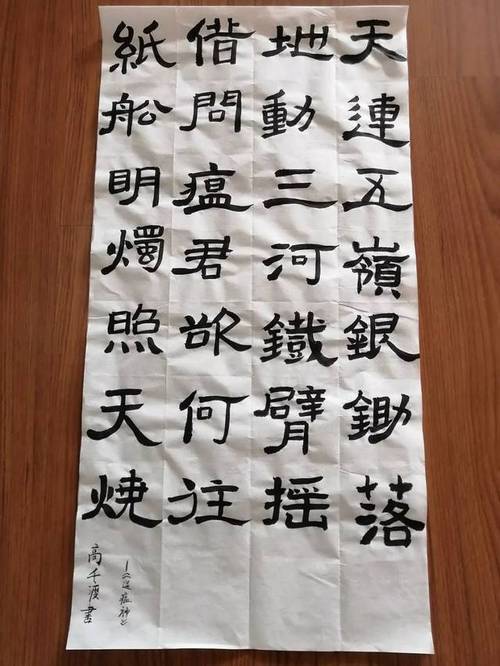 天連五嶺銀鋤落
地動三河鐵臂摇
借問瘟君欲何往
紙船明燭照天燒
—《送瘟神》
高千渡書